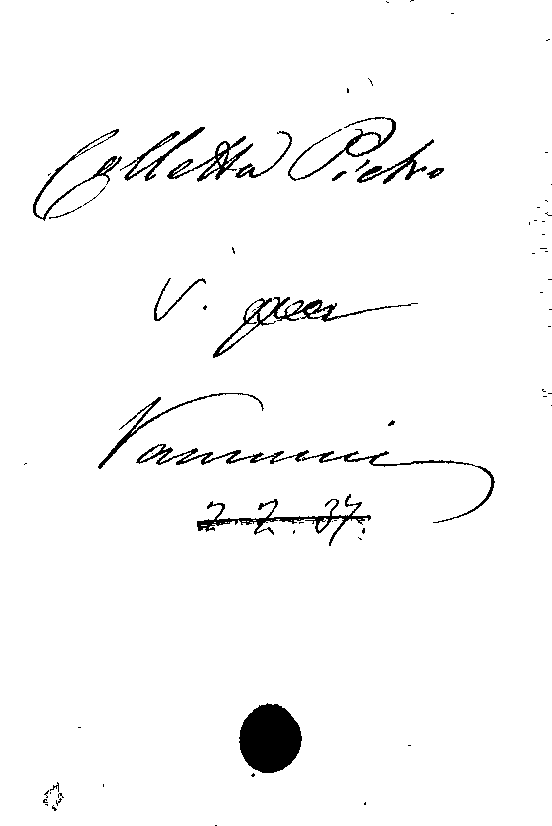 Colletta Pietro
V.
Vannucci
2. 2. 37.